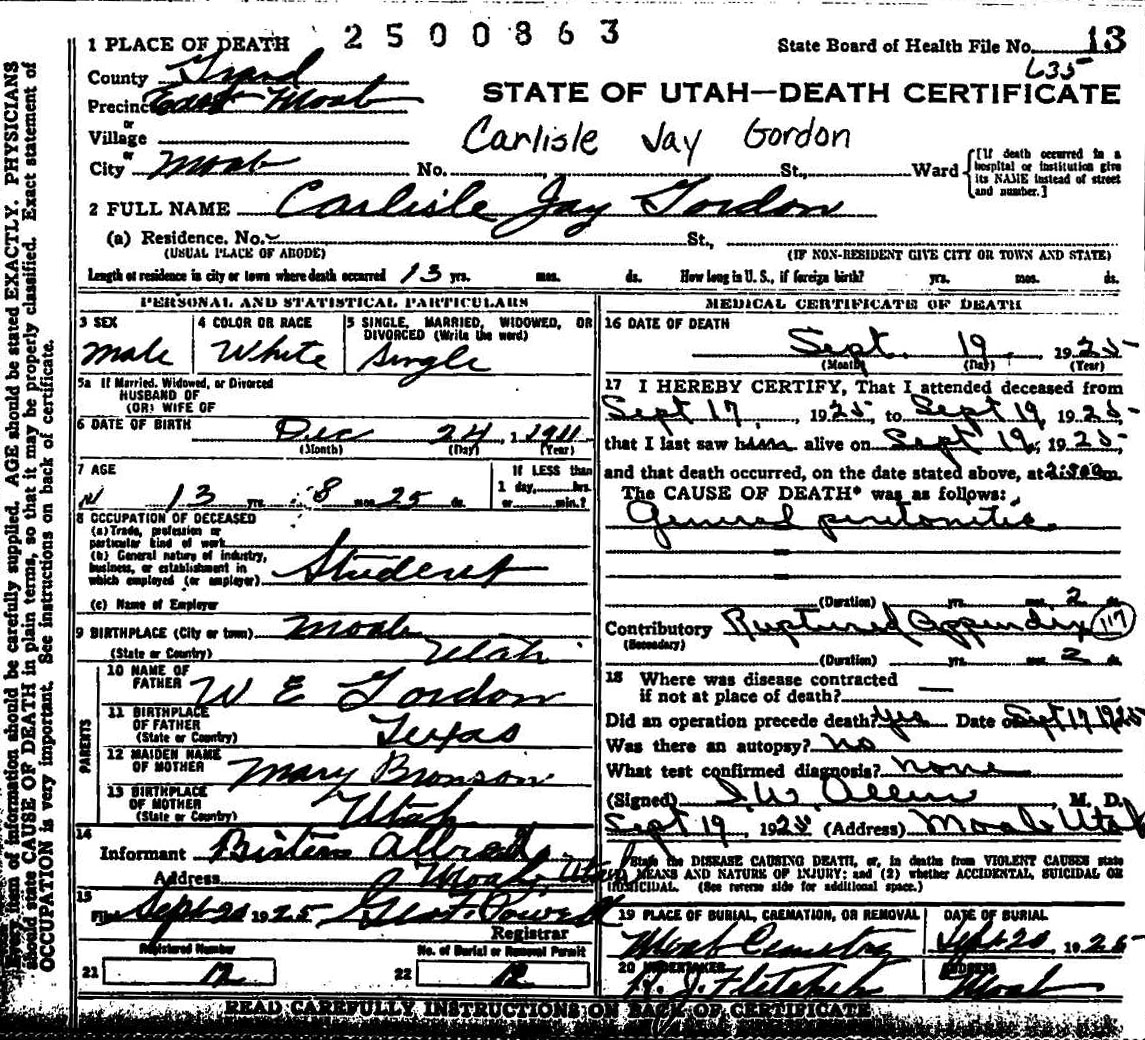 2500863
1 PLACE OF DEATH
State Board of Health File No. 13
635
County Grand
STATE OF UTAH—DEATH CERTIFICATE
Precinct East Moab
or
Village
Carlisle Jay Gordon
or
City Moab No. St., Ward
[If death occurred in a
hospital or institution give
its NAME instead of street
and number.]
2 FULL NAME Carlisle Jay Gordon
(a) Residence. No. St.,
(USUAL PLACE OF ABODE) (IF NON-RESIDENT GIVE CITY OR TOWN AND STATE)
Length of residence in city or town where death occurred 13 yrs. mos. ds. How long in U. S., if foreign birth? yrs. mos. ds.
PERSONAL AND STATISTICAL PARTICULARS
3 SEX
Male
4 COLOR OR RACE
White
5 SINGLE, MARRIED, WIDOWED, OR
DIVORCED (Write the word)
Single
5a If Married, Widowed, or Divorced
HUSBAND OF
(OR) WIFE OF
6 DATE OF BIRTH Dec 24, 1911
(Month) (Day) (Year)
7 AGE
13 yrs. 8 mos. 25 ds.
If LESS than
1 day, hrs.
or min.?
8 OCCUPATION OF DECEASED
(a) Trade, profession or
particular kind of work
(b) General nature of industry,
business, or establishment in
which employed (or employer) Student
(c) Name of Employer
9 BIRTHPLACE (City or town) Moab
(State or Country) Utah
PARENTS
10 NAME OF
FATHER W E Gordon
11 BIRTHPLACE
OF FATHER
(State or Country) Texas
12 MAIDEN NAME
OF MOTHER Mary Bronson
13 BIRTHPLACE
OF MOTHER
(State or Country) Utah
14
Informant
Address Moab, Utah
15
Filed Sept 20 1925 Geo. Powell
Registrar
Registered Number
21 12
No. of Burial or Removal Permit
22 12
MEDICAL CERTIFICATE OF DEATH
16 DATE OF DEATH
Sept. 19, 1925
(Month) (Day) (Year)
17 I HEREBY CERTIFY, That I attended deceased from
Sept 17, 1925 to Sept 19, 1925
that I last saw him alive on Sept 19, 1925
and that death occurred, on the date stated above, at m.
The CAUSE OF DEATH* was as follows:
General peritonitis
(Duration) yrs. mos. 2 ds.
Contributory Ruptured Appendix 117
(Secondary)
(Duration) yrs. mos. 2 ds.
18 Where was disease contracted
if not at place of death? —
Did an operation precede death? Yes Date of Sept 17 1925
Was there an autopsy? no
What test confirmed diagnosis? none
(Signed) J. W. Allen, M. D.
Sept 19, 1925 (Address) Moab Utah
State the DISEASE CAUSING DEATH, or, in deaths from VIOLENT CAUSES state
MEANS AND NATURE OF INJURY; and (2) whether ACCIDENTAL, SUICIDAL OR
HOMICIDAL. (See reverse side for additional space.)
19 PLACE OF BURIAL, CREMATION, OR REMOVAL
Moab Cemetry
DATE OF BURIAL
Sept 20 1925
20 UNDERTAKER
H. J. Fletcher
ADDRESS
Moab
READ CAREFULLY INSTRUCTIONS ON BACK OF CERTIFICATE
Every item of information should be carefully supplied. AGE should be stated EXACTLY. PHYSICIANS
should state CAUSE OF DEATH in plain terms, so that it may be properly classified. Exact statement of
OCCUPATION is very important. See instructions on back of certificate.